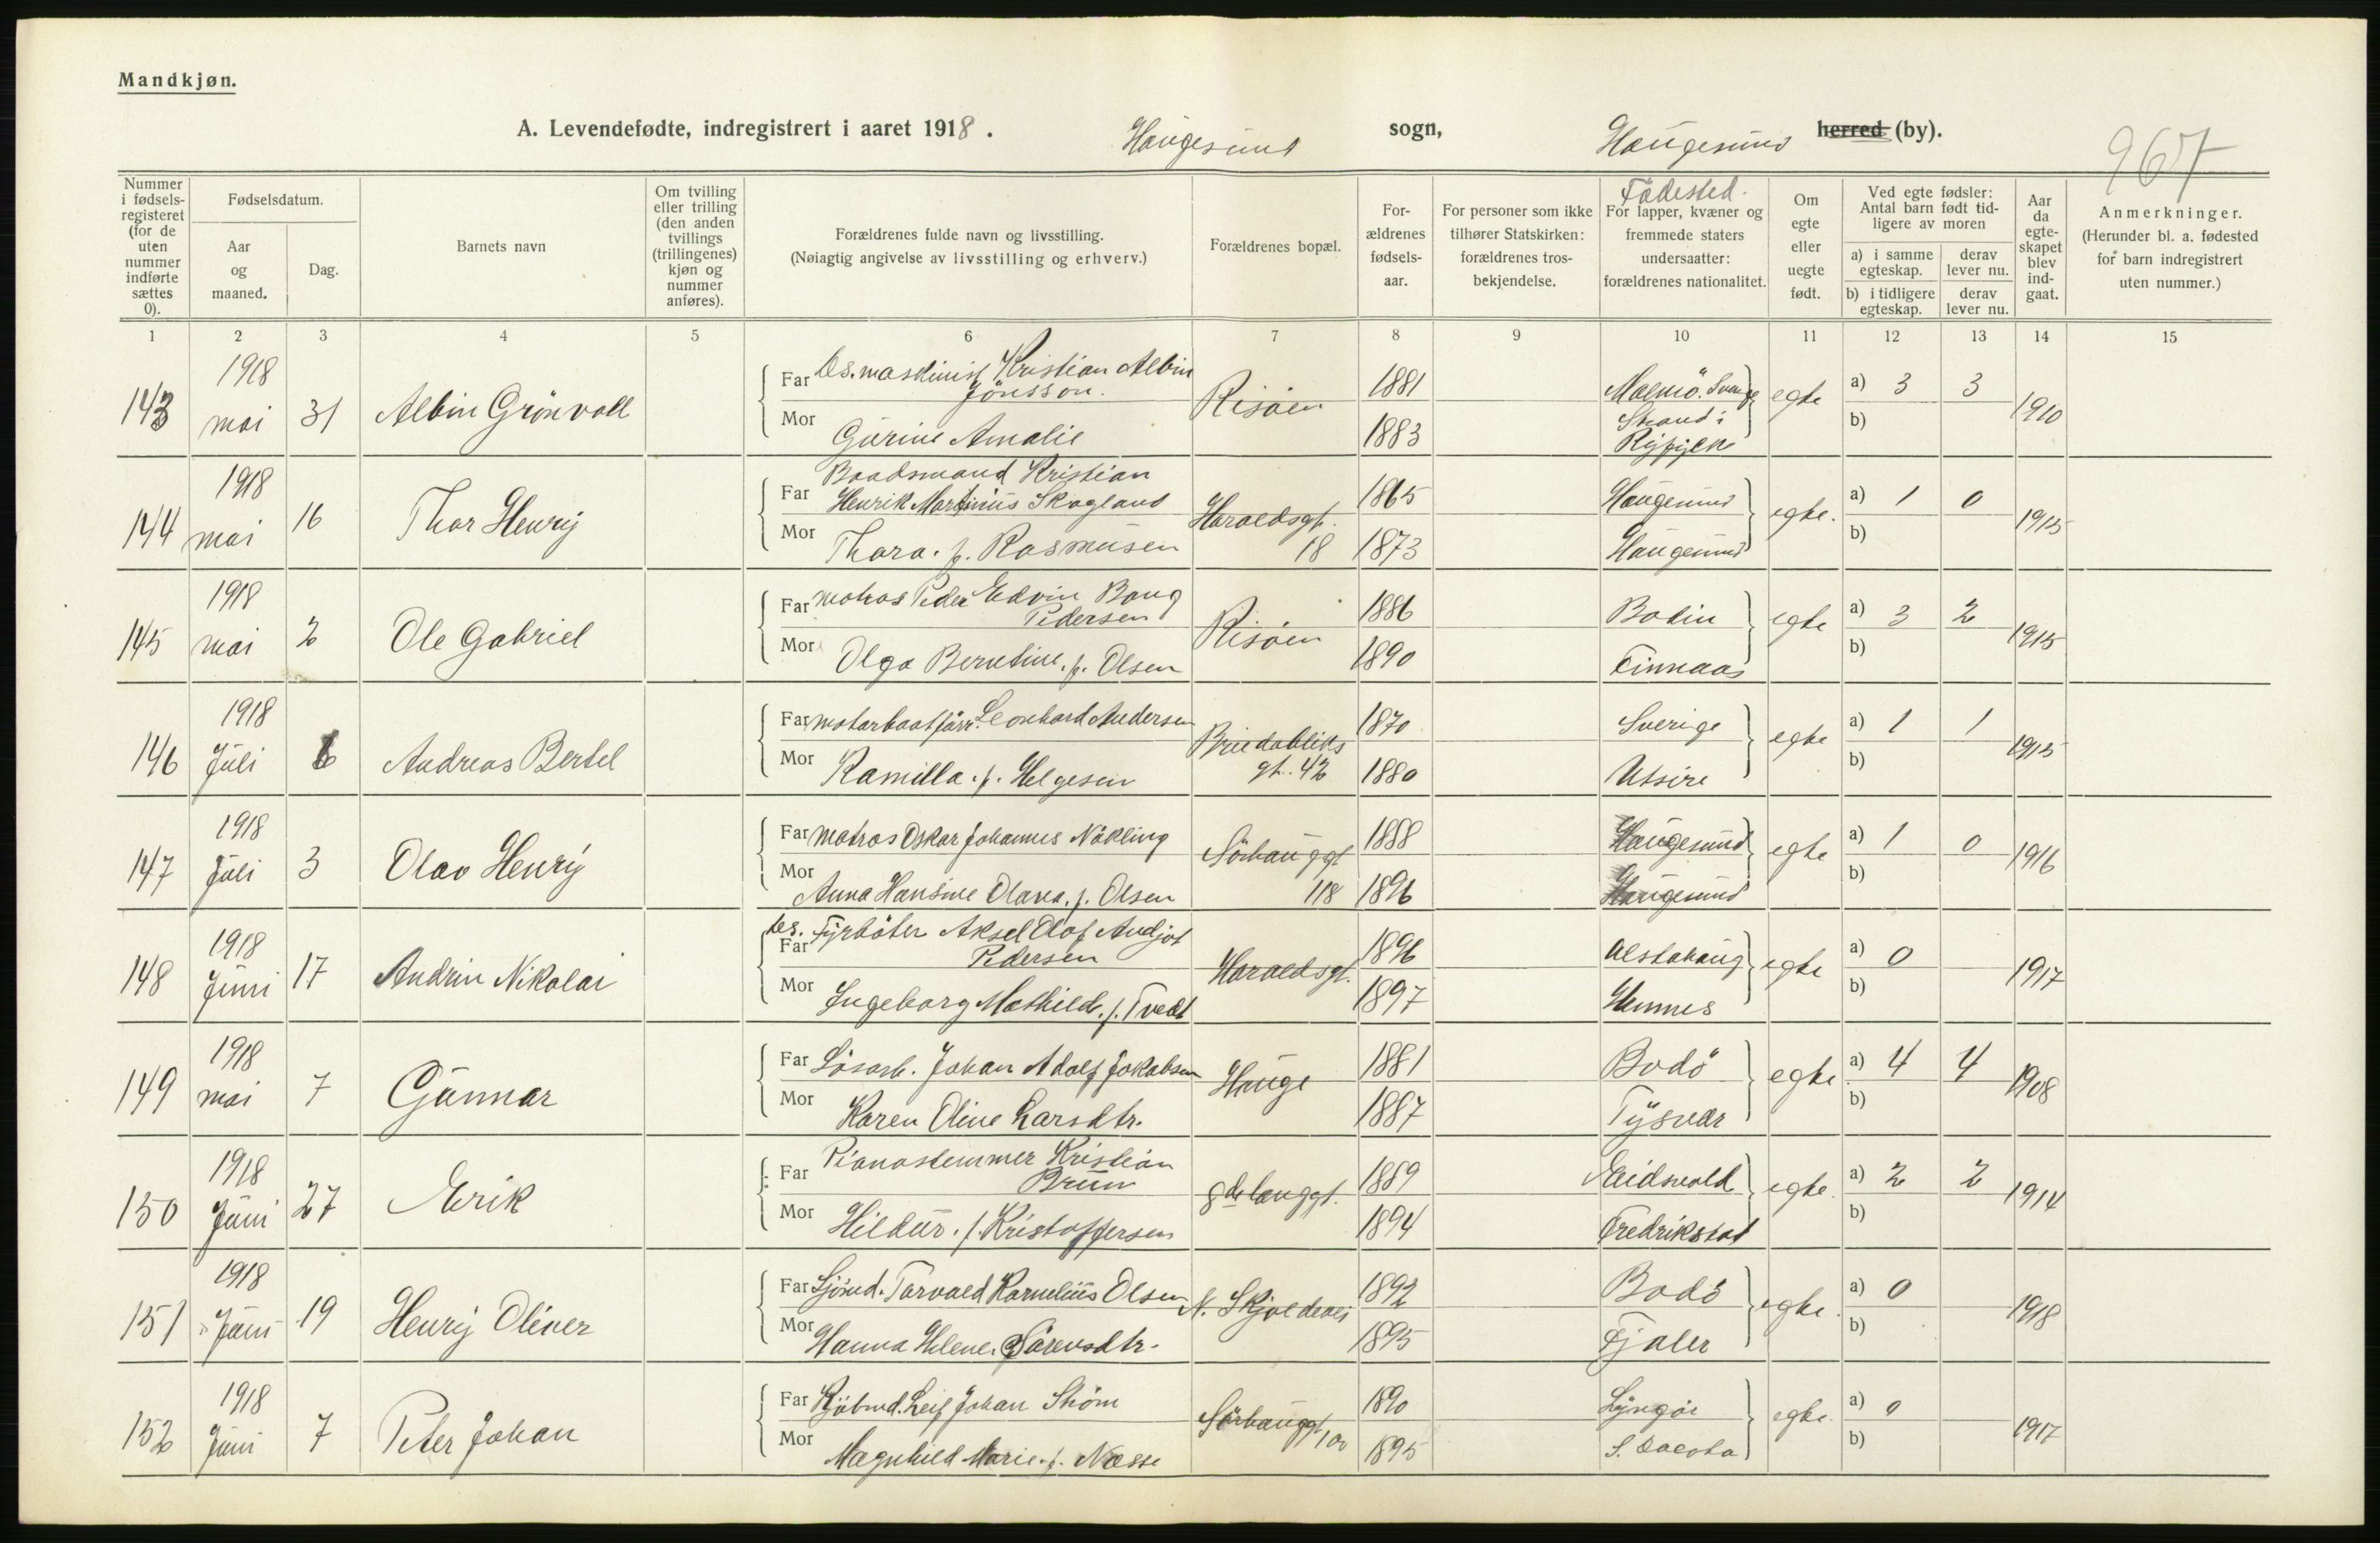 Mandkjøn.
A. Levendefødte, indregistrert i aaret 1918. Haugesund sogn, Haugesund herred (by).
967
Nummer i fødselsregisteret (for de uten nummer indførte sættes 0).
Fødselsdatum.
Aar og maaned.
Dag.
Barnets navn
Om tvilling eller trilling (den anden tvillings (trillingenes) kjøn og nummer anføres).
Forældrenes fulde navn og livsstilling.
(Nøiagtig angivelse av livsstilling og erhverv.)
Forældrenes bopæl.
Forældrenes fødselsaar.
For personer som ikke tilhører Statskirken: forældrenes trosbekjendelse.
Fødested.
For lapper, kvæner og fremmede staters undersaatter: forældrenes nationalitet.
Om egte eller uegte født.
Ved egte fødsler: Antal barn født tidligere av moren
a) i samme egteskap. derav lever nu.
b) i tidligere egteskap. derav lever nu.
Aar da egteskapet blev indgaat.
Anmerkninger.
(Herunder bl. a. fødested for barn indregistrert uten nummer.)
1 2 3 4 5 6 7 8 9 10 11 12 13 14 15
143 1918 mai 31 Albin Grönvoll
Far Os. maskinist Kristian Albin Jönsson. Risöen 1881 Malmö. Sverige egte a) 3 3 1910
Mor Gurine Amalie 1883 Strand i Ryfylke b)
144 1918 mai 16 Thor Henry
Far Baadsmand Kristian Henrik Martinius Skogland Haraldsgt. 18 1865 Haugesund egte. a) 1 0 1915
Mor Thora. f. Rasmusen 1873 Haugesund b)
145 1918 mai 2 Ole Gabriel
Far matros Peder Edvin Bang Pedersen Risöen 1886 Bodin egte a) 3 2 1915
Mor Olga Berntine. f. Olsen 1890 Finnaas b)
146 1918 Juli 6 Andreas Bertel
Far motorbaatförer Leonhard Andersen Breidabliksgt. 42 1870 Sverige egte a) 1 1 1915
Mor Kamilla. f. Helgesen 1880 Utsire b)
147 1918 Juli 3 Olav Henry
Far matros Oskar Johannes Nökling Sörhauggt 118 1888 Haugesund egte a) 1 0 1916
Mor Anna Hansine Olava. f. Olsen 1896 Haugesund b)
148 1918 Juni 17 Andrin Nikolai
Far Os. Fyrböter Aksel Olof Andjot Pedersen Haraldsgt. 1896 Alstahaug egte a) 0 1917
Mor Ingeborg Mathilde. f. Tvedt 1897 Hemnes b)
149 1918 mai 7 Gunnar
Far Lösarb. Johan Adolf Jakobsen Hauge 1881 Bodö egte a) 4 4 1908
Mor Karen Oline Larsdtr. 1887 Tysvær b)
150 1918 Juni 27 Erik
Far Pianostemmer Kristian Bruun 8de langgt. 1889 Eidsvold egte. a) 2 2 1914
Mor Hildur. f. Kristoffersen 1894 Fredrikstad b)
151 1918 Juni 19 Henry Oliver
Far Sjömd. Torvald Kornelius Olsen N. Skjoldevei 1892 Bodö egte. a) 0 1918
Mor Hanna Helene. Sörensdtr. 1895 Fjaler b)
152 1918 Juni 7 Peter Johan
Far Kjöbmd. Leif Johan Ström Sörhauggt 100 1890 Lyngör egte. a) 0 1917
Mor Magnhild Marie. f. Næsse 1895 S. Dacota b)